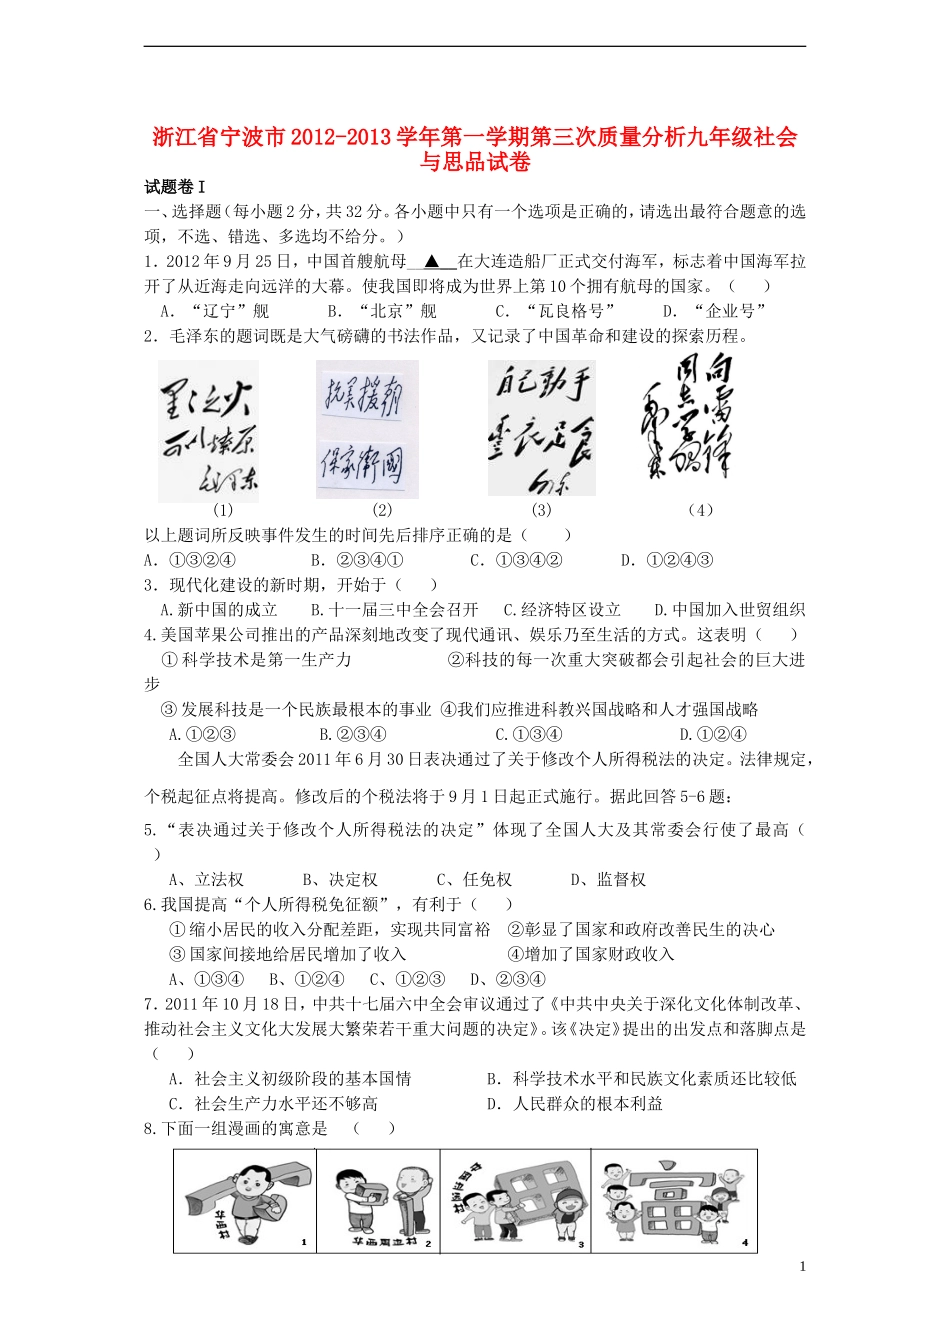 浙江省宁波市 2012-2013 学年第一学期第三次质量分析九年级社会
与思品试卷
试题卷 I
一、选择题(每小题 2 分,共 32 分。各小题中只有一个选项是正确的,请选出最符合题意的选
项，不选、错选、多选均不给分。)
1.2012 年 9 月 25 日,中国首艘航母__▲__在大连造船厂正式交付海军,标志着中国海军拉
开了从近海走向远洋的大幕。使我国即将成为世界上第 10 个拥有航母的国家。(    )
A．“辽宁”舰    B．“北京”舰    C．“瓦良格号”    D．“企业号”
2．毛泽东的题词既是大气磅礴的书法作品，又记录了中国革命和建设的探索历程。
星星之火
可以燎原
毛泽东
抗美援朝
保家衛國
自己動手
豐衣足食
向雷锋
同志学習
毛泽东
(1)    (2)    (3)    （4）
以上题词所反映事件发生的时间先后排序正确的是（    ）
A．①③②④    B．②③④①    C．①③④②    D．①②④③
3．现代化建设的新时期，开始于（    ）
A.新中国的成立    B.十一届三中全会召开    C.经济特区设立    D.中国加入世贸组织
4.美国苹果公司推出的产品深刻地改变了现代通讯、娱乐乃至生活的方式。这表明（    ）
① 科学技术是第一生产力    ②科技的每一次重大突破都会引起社会的巨大进
步
③ 发展科技是一个民族最根本的事业  ④我们应推进科教兴国战略和人才强国战略
A.①②③    B.②③④    C.①③④    D.①②④
全国人大常委会 2011 年 6 月 30 日表决通过了关于修改个人所得税法的决定。法律规定，
个税起征点将提高。修改后的个税法将于 9 月 1 日起正式施行。据此回答 5-6 题：
5.“表决通过关于修改个人所得税法的决定”体现了全国人大及其常委会行使了最高（
）
A、立法权    B、决定权    C、任免权    D、监督权
6.我国提高“个人所得税免征额”，有利于（    ）
① 缩小居民的收入分配差距，实现共同富裕  ②彰显了国家和政府改善民生的决心
③ 国家间接地给居民增加了收入    ④增加了国家财政收入
A、①③④  B、①②④  C、①②③  D、②③④
7.2011 年 10 月 18 日,中共十七届六中全会审议通过了《中共中央关于深化文化体制改革、
推动社会主义文化大发展大繁荣若干重大问题的决定》。该《决定》提出的出发点和落脚点是
（    ）
A．社会主义初级阶段的基本国情    B．科学技术水平和民族文化素质还比较低
C．社会生产力水平还不够高    D．人民群众的根本利益
8.下面一组漫画的寓意是  （    ）
华西村 1
华西周边村 2
中西部边远村 3
富 4
1